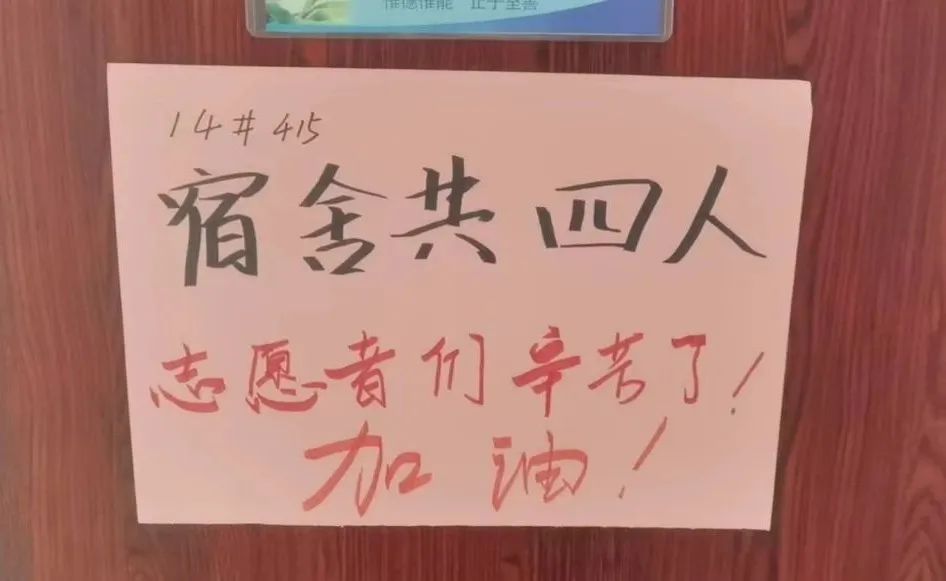 惟德惟能 止于至善
14# 415
宿舍共四人
志愿者们辛苦了!
加油!